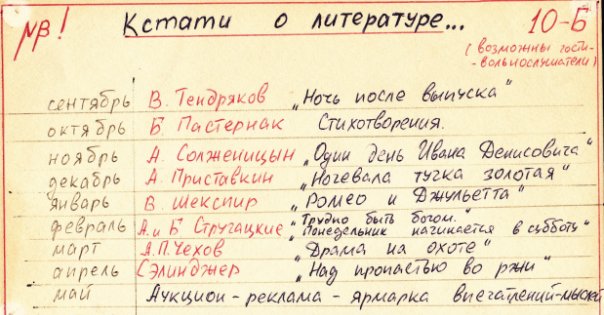 NB! Кстати о литературе... 10-Б
(возможны гости-
-вольнослушатели)
сентябрь В. Тендряков „Ночь после выпуска“
октябрь Б Пастернак Стихотворения.
ноябрь А. Солженицын „Один день Ивана Денисовича“
декабрь А. Приставкин „Ночевала тучка золотая“
январь В. Шекспир „Ромео и Джульетта“
февраль А. и Б Стругацкие „Трудно быть богом.“
„Понедельник начинается в субботу“
март А.П. Чехов „Драма на охоте“
апрель Сэлинджер „Над пропастью во ржи“
май Аукцион - реклама - ярмарка впечатлений-мыслей